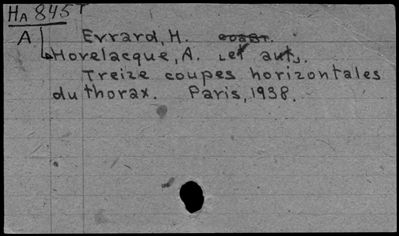 HA 845 T
A Evrard, H.
Hovelacque, A. et auts.
Treize coupes horizontales
du thorax. Paris, 1938.